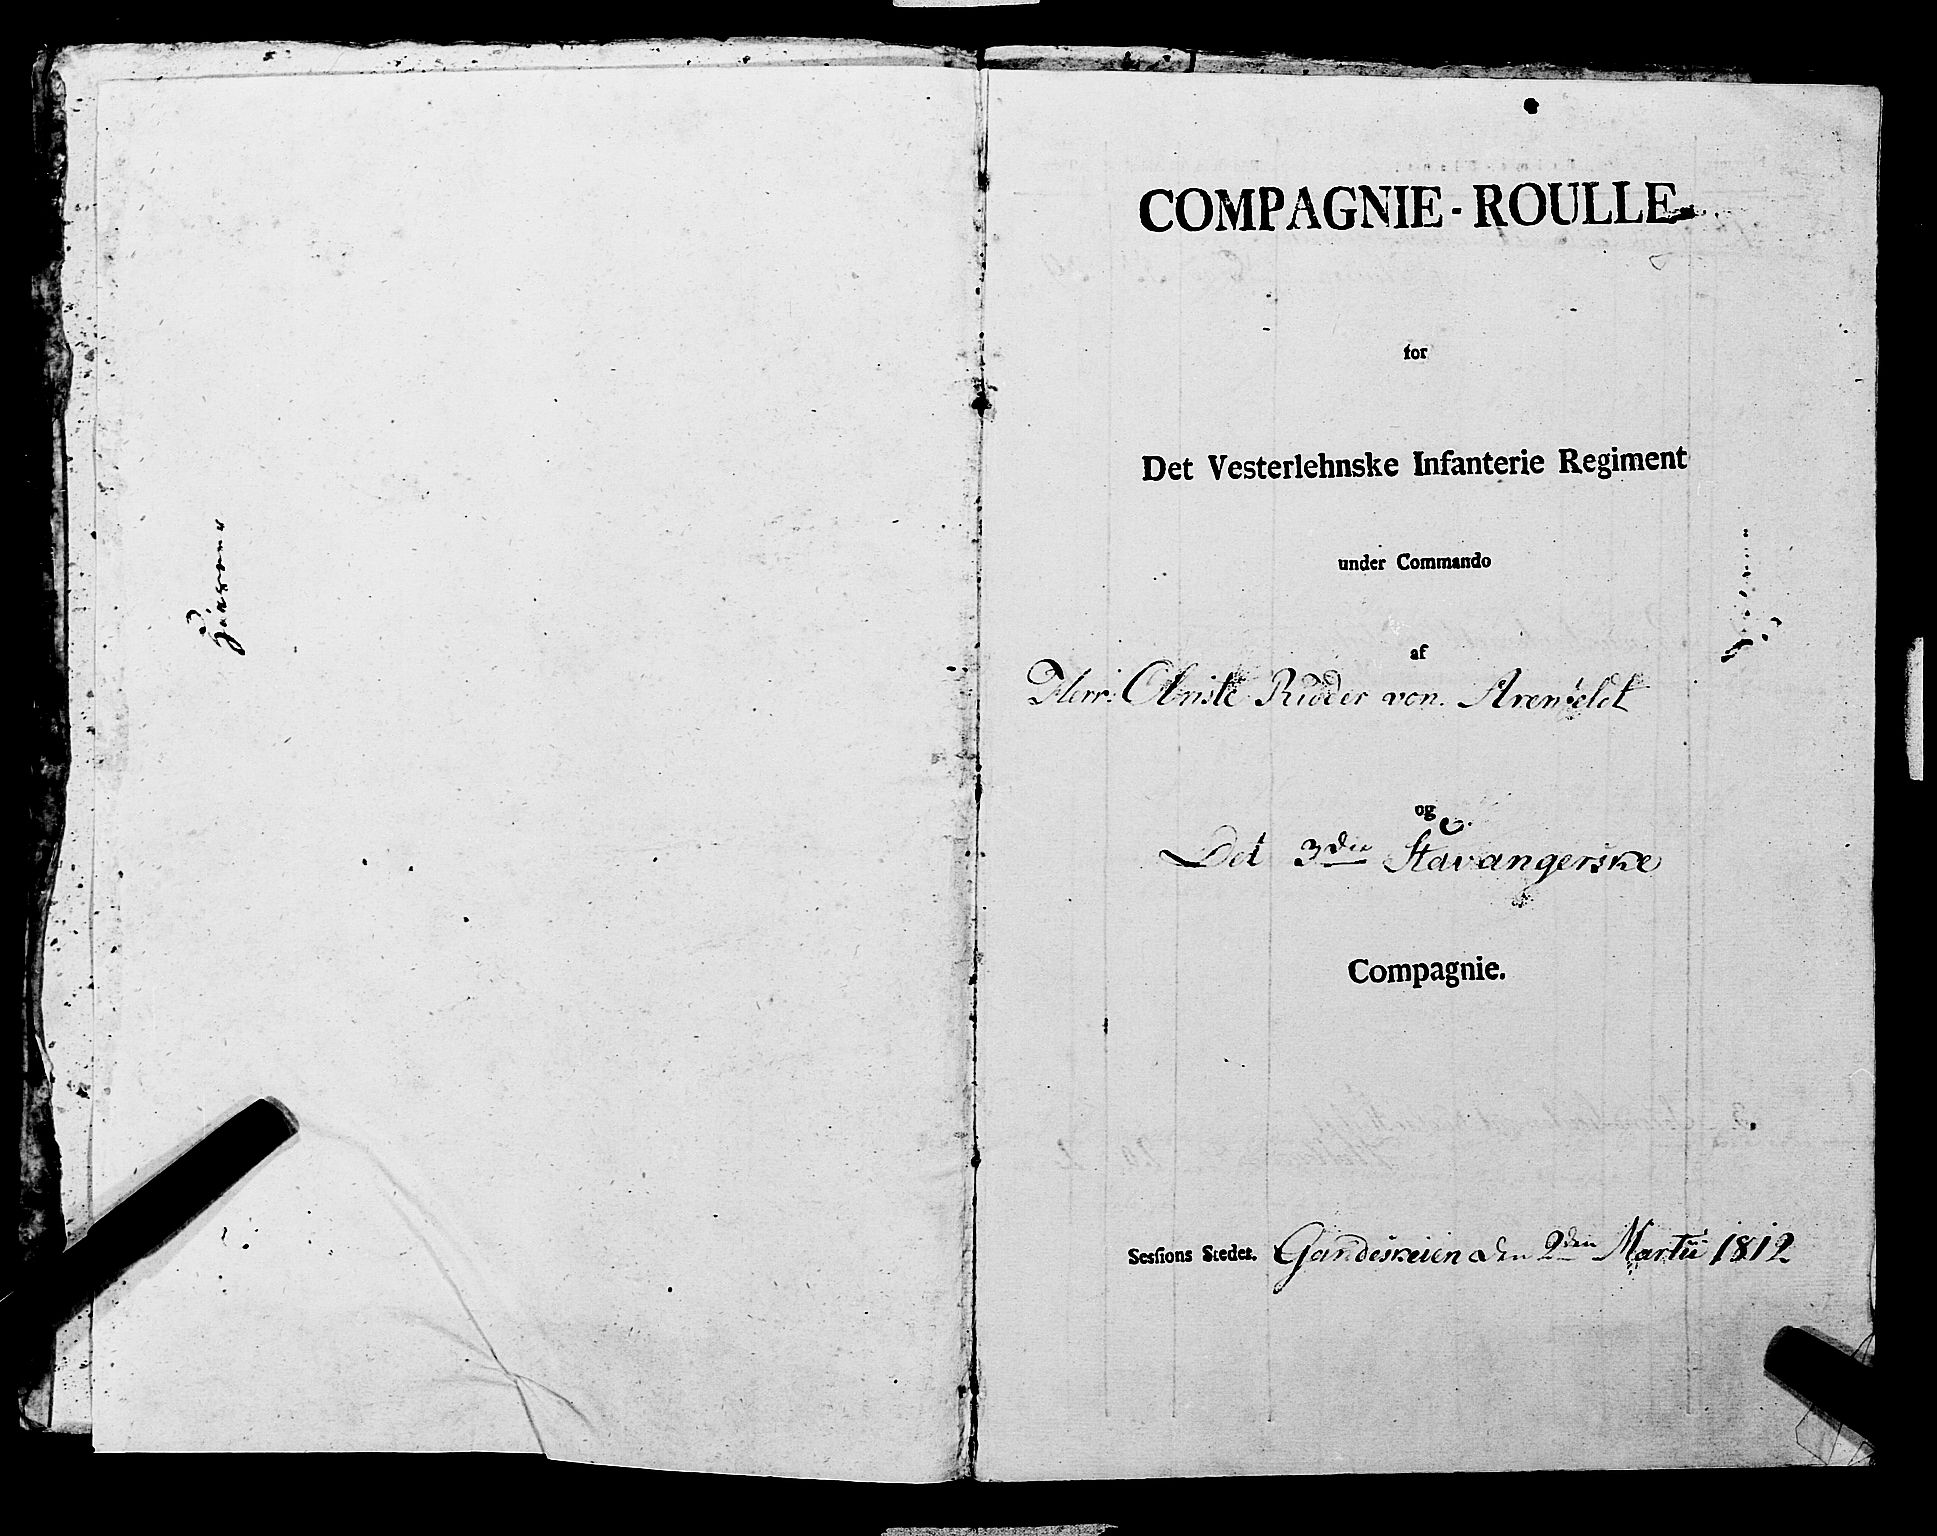 COMPAGNIE-ROULLE
for
Det Vesterlehnske Infanterie Regiment
under Commando
af
Herr: Obriste Ridder von. Arenfeldt
og
Det 3die Stavangerske
Compagnie.
Sessions Stedet. Gandeskeien den 2den Martii 1812